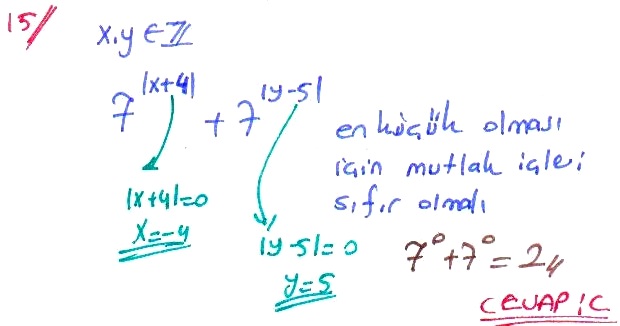 15/ x,y ∈ ℤ
7^|x+4| + 7^|y-5|
en küçük olması
için mutlak içleri
sıfır olmalı
|x+4|=0
x=-4
|y-5|=0
y=5
7⁰+7⁰=2
CEVAP: C